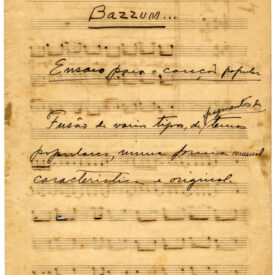 BAZZUM...
Ensaio para a canção popular
Fusão de varios typos, de fragmentos de tema
populares, numa forma musical
caracteristica e original.